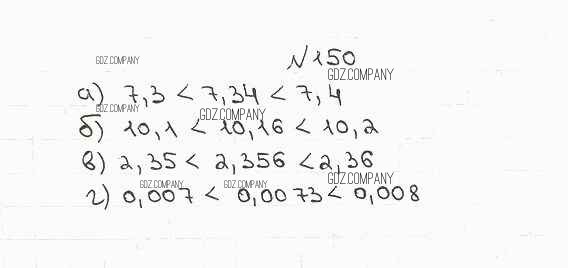 №150
GDZ.COMPANY
GDZ.COMPANY
а) 7,3 < 7,34 < 7,4
GDZ.COMPANY
GDZ.COMPANY
б) 10,1 < 10,16 < 10,2
в) 2,35 < 2,356 < 2,36
GDZ.COMPANY
GDZ.COMPANY GDZ.COMPANY
г) 0,007 < 0,0073 < 0,008